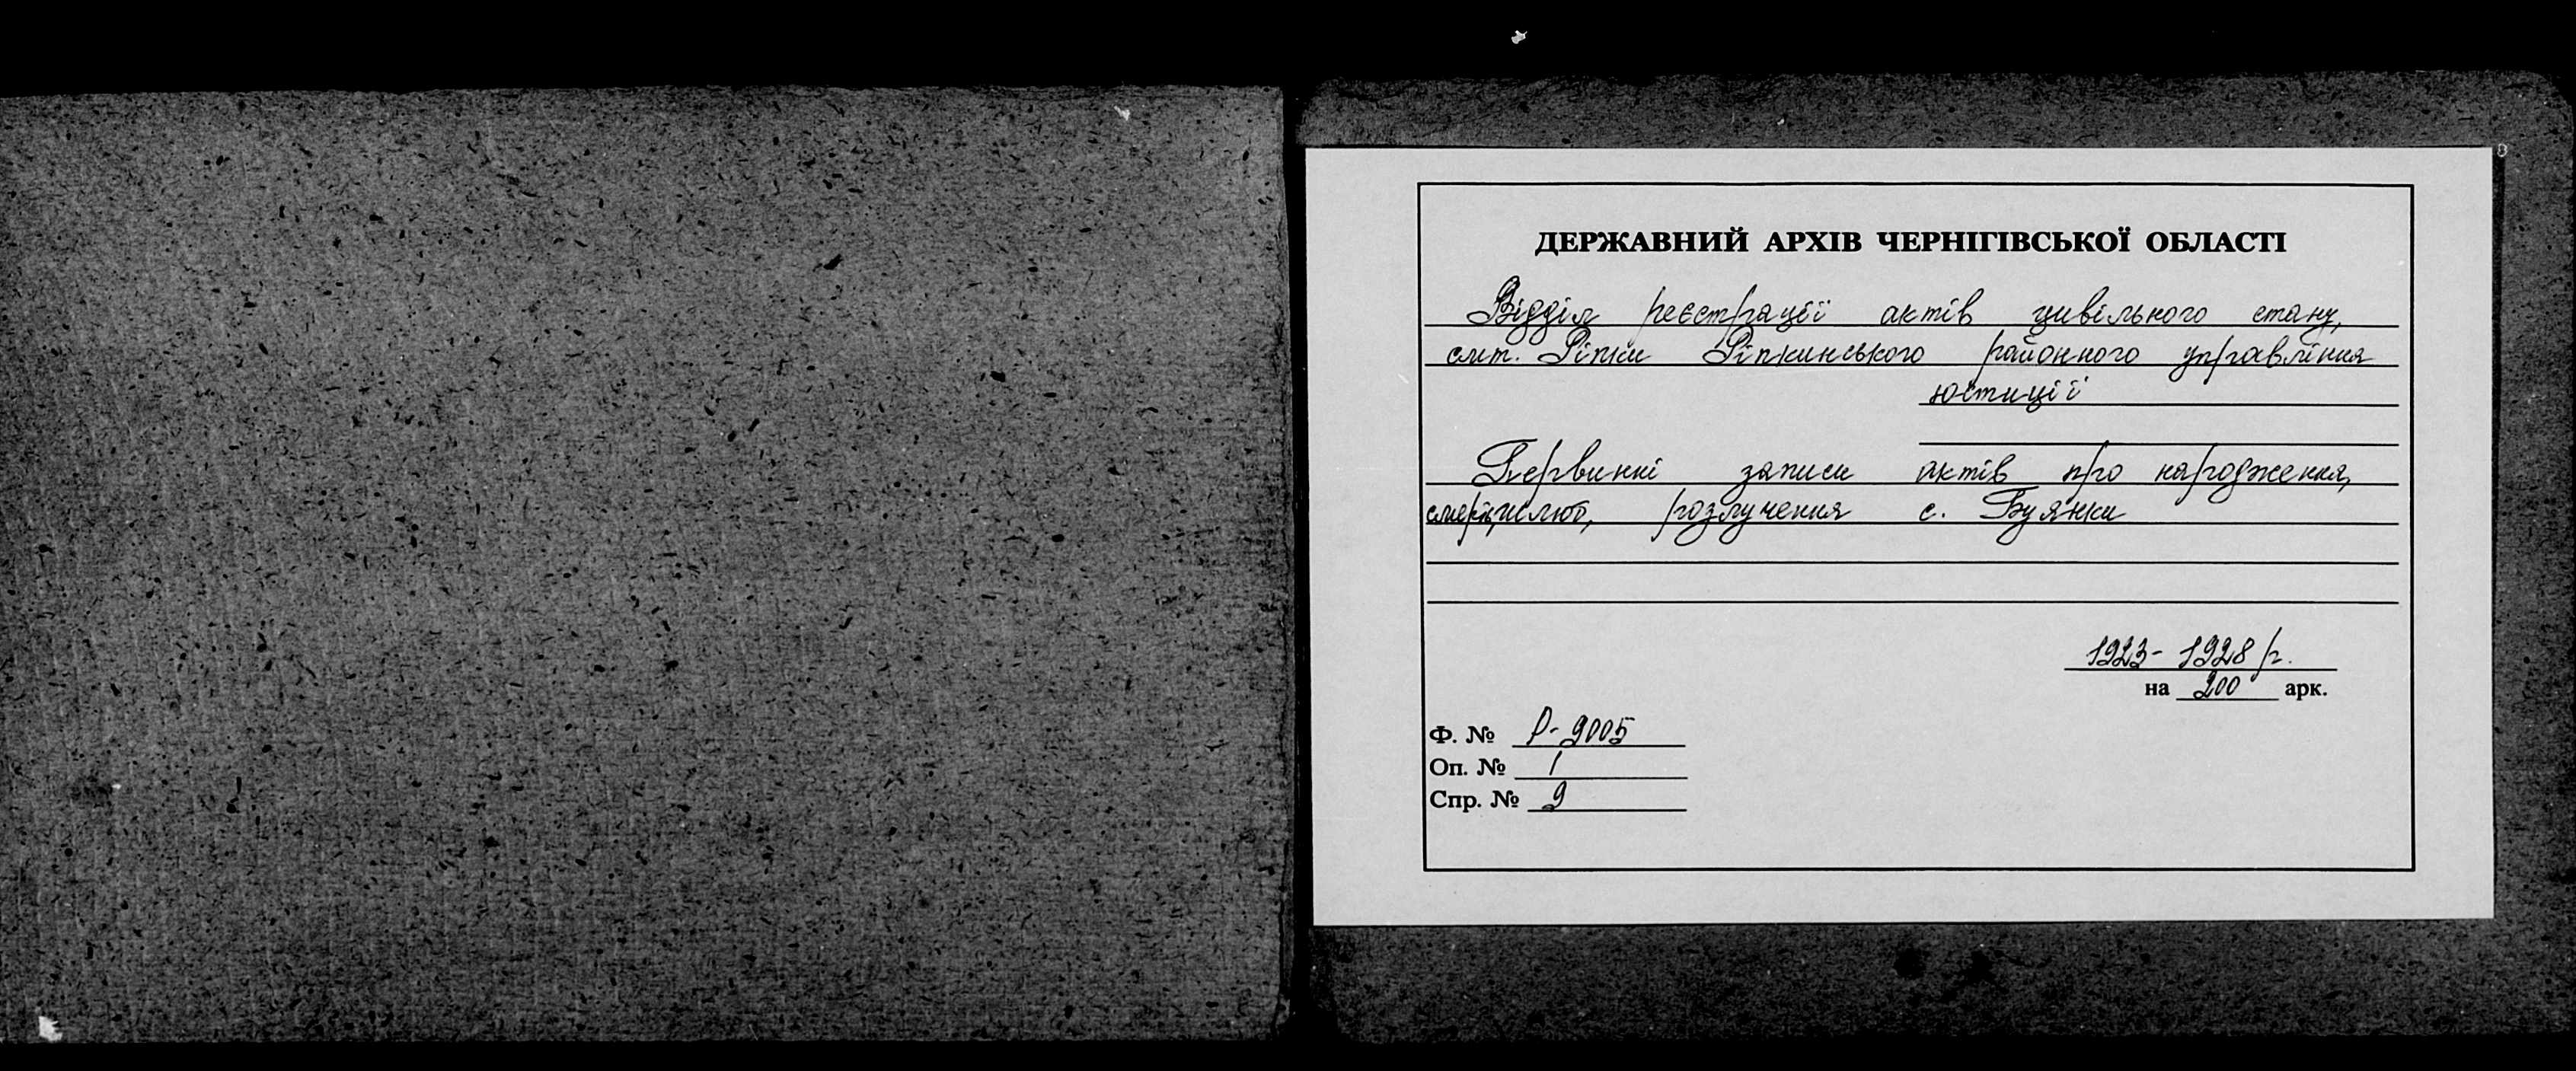 ДЕРЖАВНИЙ АРХІВ ЧЕРНІГІВСЬКОЇ ОБЛАСТІ
Відділ реєстрації актів цивільного стану,
смт. Ріпки Ріпкинського районного управління
юстиції
Первинні записи актів про народження,
смерть, шлюб, розлучення с. Буянки
1923-1928 р.
на 200 арк.
Ф. № Р-9005
Оп. № 1
Спр. № 9